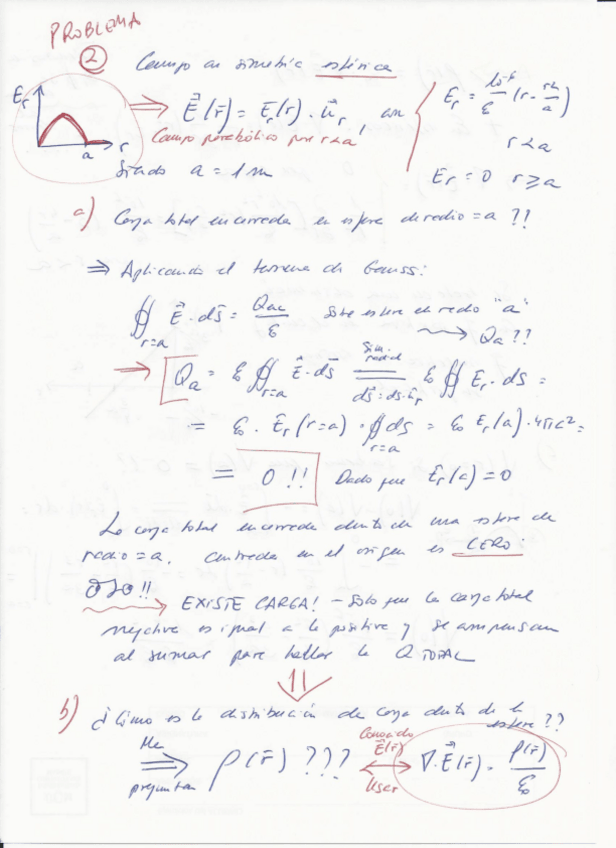 PROBLEMA
② Campo con simetría esférica
E_r
a r
⇒ E⃗(r̄) = E_r(r) · û_r con
E_r = (r - r²/a)
r < a
Campo parabólico por r<a
Siendo a = 1 m
E_r = 0 r ⩾ a
a) Carga total encerrada en esfera de radio = a ??
⇒ Aplicando el teorema de Gauss:
∯_{r=a} E⃗ · ds̄ = Q_{a} / ε sobre esfera de radio "a"
Qa ??
→ Qa = ε₀ ∯_{r=a} E⃗ · ds̄ = ε₀ ∯ E_r · ds =
Sim. radial
ds̄ = ds · û_r
= ε₀ · E_r (r=a) · ∯_{r=a} ds = ε₀ E_r(a) · 4πa² =
= 0 !! Dado que E_r(a) = 0
La carga total encerrada dentro de una esfera de
radio = a, centrada en el origen es CERO:
OJO !!
EXISTE CARGA! - Sólo que la carga total
negativa es igual a la positiva y se compensan
al sumar para hallar la Q TOTAL
b) ¿Cómo es la distribución de carga dentro de la
esfera ??
Me
preguntan
⇒ ρ(r̄) ???
Conocido
E⃗(r̄)
Usar
∇·E⃗(r̄) = ρ(r̄) / ε₀